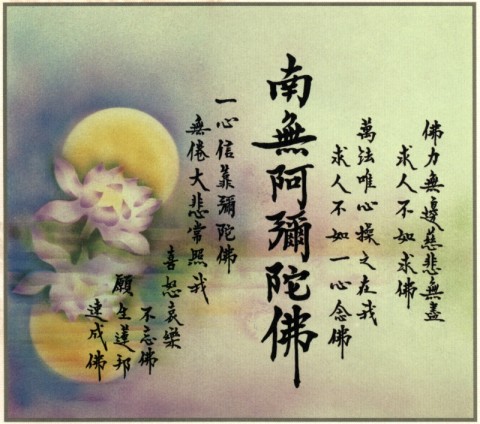 佛力無邊慈悲無盡
求人不如求佛
萬法唯心操之在我
求人不如一心念佛
南無阿彌陀佛
一心信靠彌陀佛
無倦大悲常照我
喜怒哀樂
不忘佛
願生蓮邦
速成佛